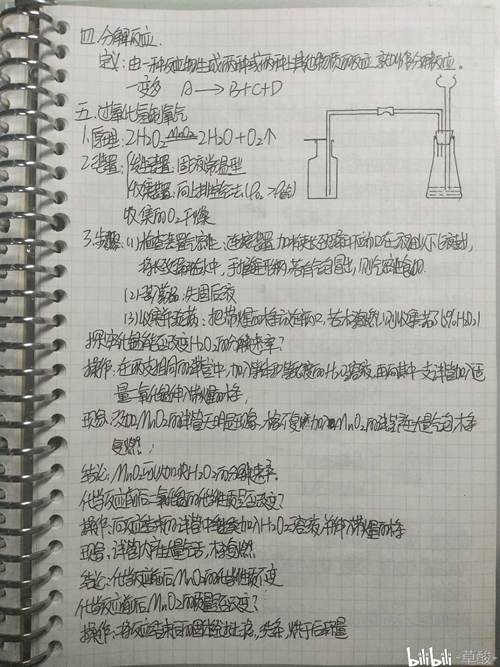 四.分解反应
定义:由一种反应物生成两种或两种以上其他物质的反应,就叫作分解反应。
一变多 A → B+C+D
五.过氧化氢制氧气
1.原理:2H₂O₂ MnO₂ 2H₂O+O₂↑
2.装置: 发生装置:固液常温型
收集装置:向上排空气法
收集的O₂干燥
3.步骤:(1)检查装置气密性:连接装置,加水使长颈漏斗下端口在液面以下
(2)装药品:先固后液
(3)收集并验满:把带火星的木条放在瓶口,若木条复燃,则收集满了
探究:二氧化锰能否改变H₂O₂的分解速率?
操作:在两支相同的试管中,加入等体积等浓度的H₂O₂溶液,再向其中一支试管加入适
量二氧化锰,伸入带火星的木条
现象:不加MnO₂的试管无明显现象,木条不复燃,加入MnO₂的试管产生大量气泡,木条
复燃;
结论:MnO₂可以加快H₂O₂的分解速率
化学反应前后二氧化锰的化学性质是否改变?
操作:向反应结束的试管中继续加入H₂O₂溶液,并伸入带火星的木条
现象:试管内产生大量气泡,木条复燃
结论:化学反应前后MnO₂的化学性质不变
化学反应前后MnO₂的质量是否改变?
操作:将反应结束后的固体过滤,洗涤,烘干后称量
bilibili·草酸·